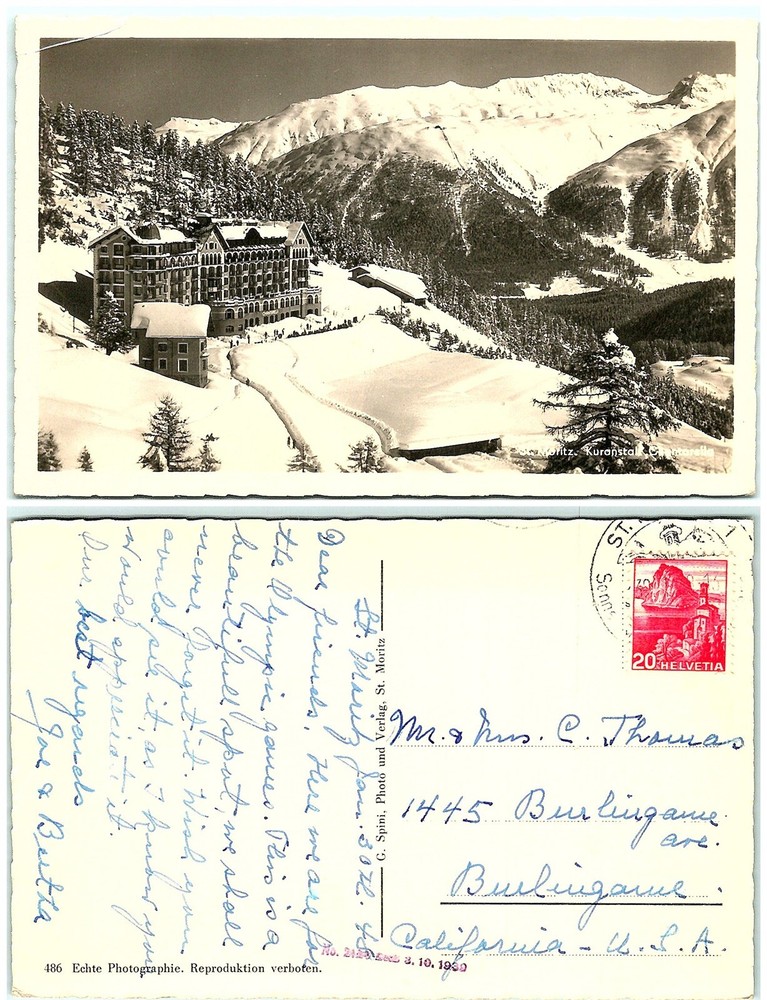 St. Moritz. Kuranstalt Chantarella
St. Moritz Jan. 30th. 48
Dear friends. Here we are for
the Olympic games. This is a
beautiful spot, we shall
never forget it. Wish you
could see it, as I know you
would appreciate it.
Our best regards
Joe & Bertha
G. Spini, Photo und Verlag, St. Moritz
ST.
20 HELVETIA
Mr. & Mrs. C. Thomas
1445 Burlingame
ave.
Burlingame
California - U.S.A.
486 Echte Photographie. Reproduktion verboten.
3.10.1939